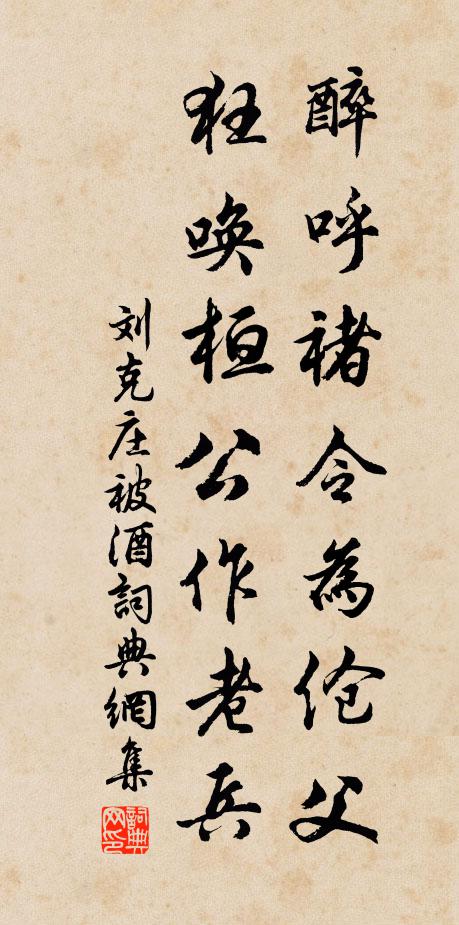 醉呼褚令为伧父
狂唤桓公作老兵
刘克庄被酒詞典網集
詞典网印